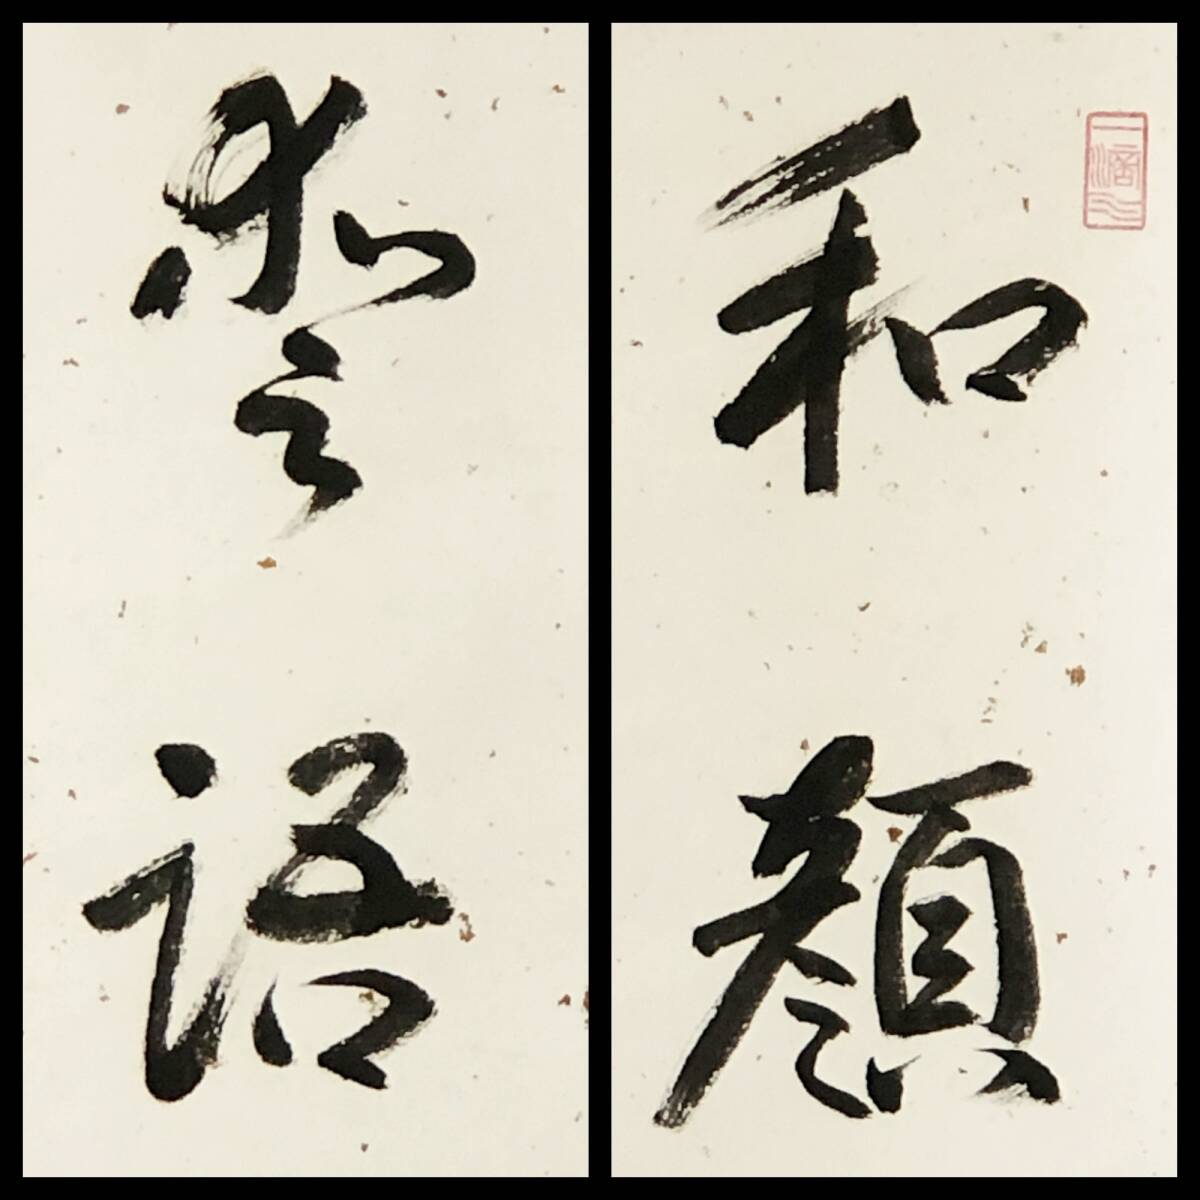 和顔
愛語
一滴水